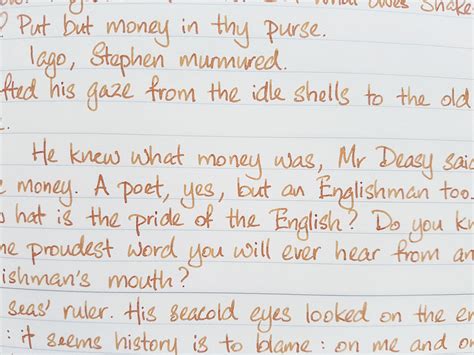 what does Shake
? Put but money in thy purse.
Iago, Stephen murmured.
fted his gaze from the idle shells to the old
He knew what money was, Mr Deasy said
e money. A poet, yes, but an Englishman too.
hat is the pride of the English? Do you kn
he proudest word you will ever hear from an
ishman's mouth?
seas' ruler. His seacold eyes looked on the em
: it seems history is to blame : on me and o